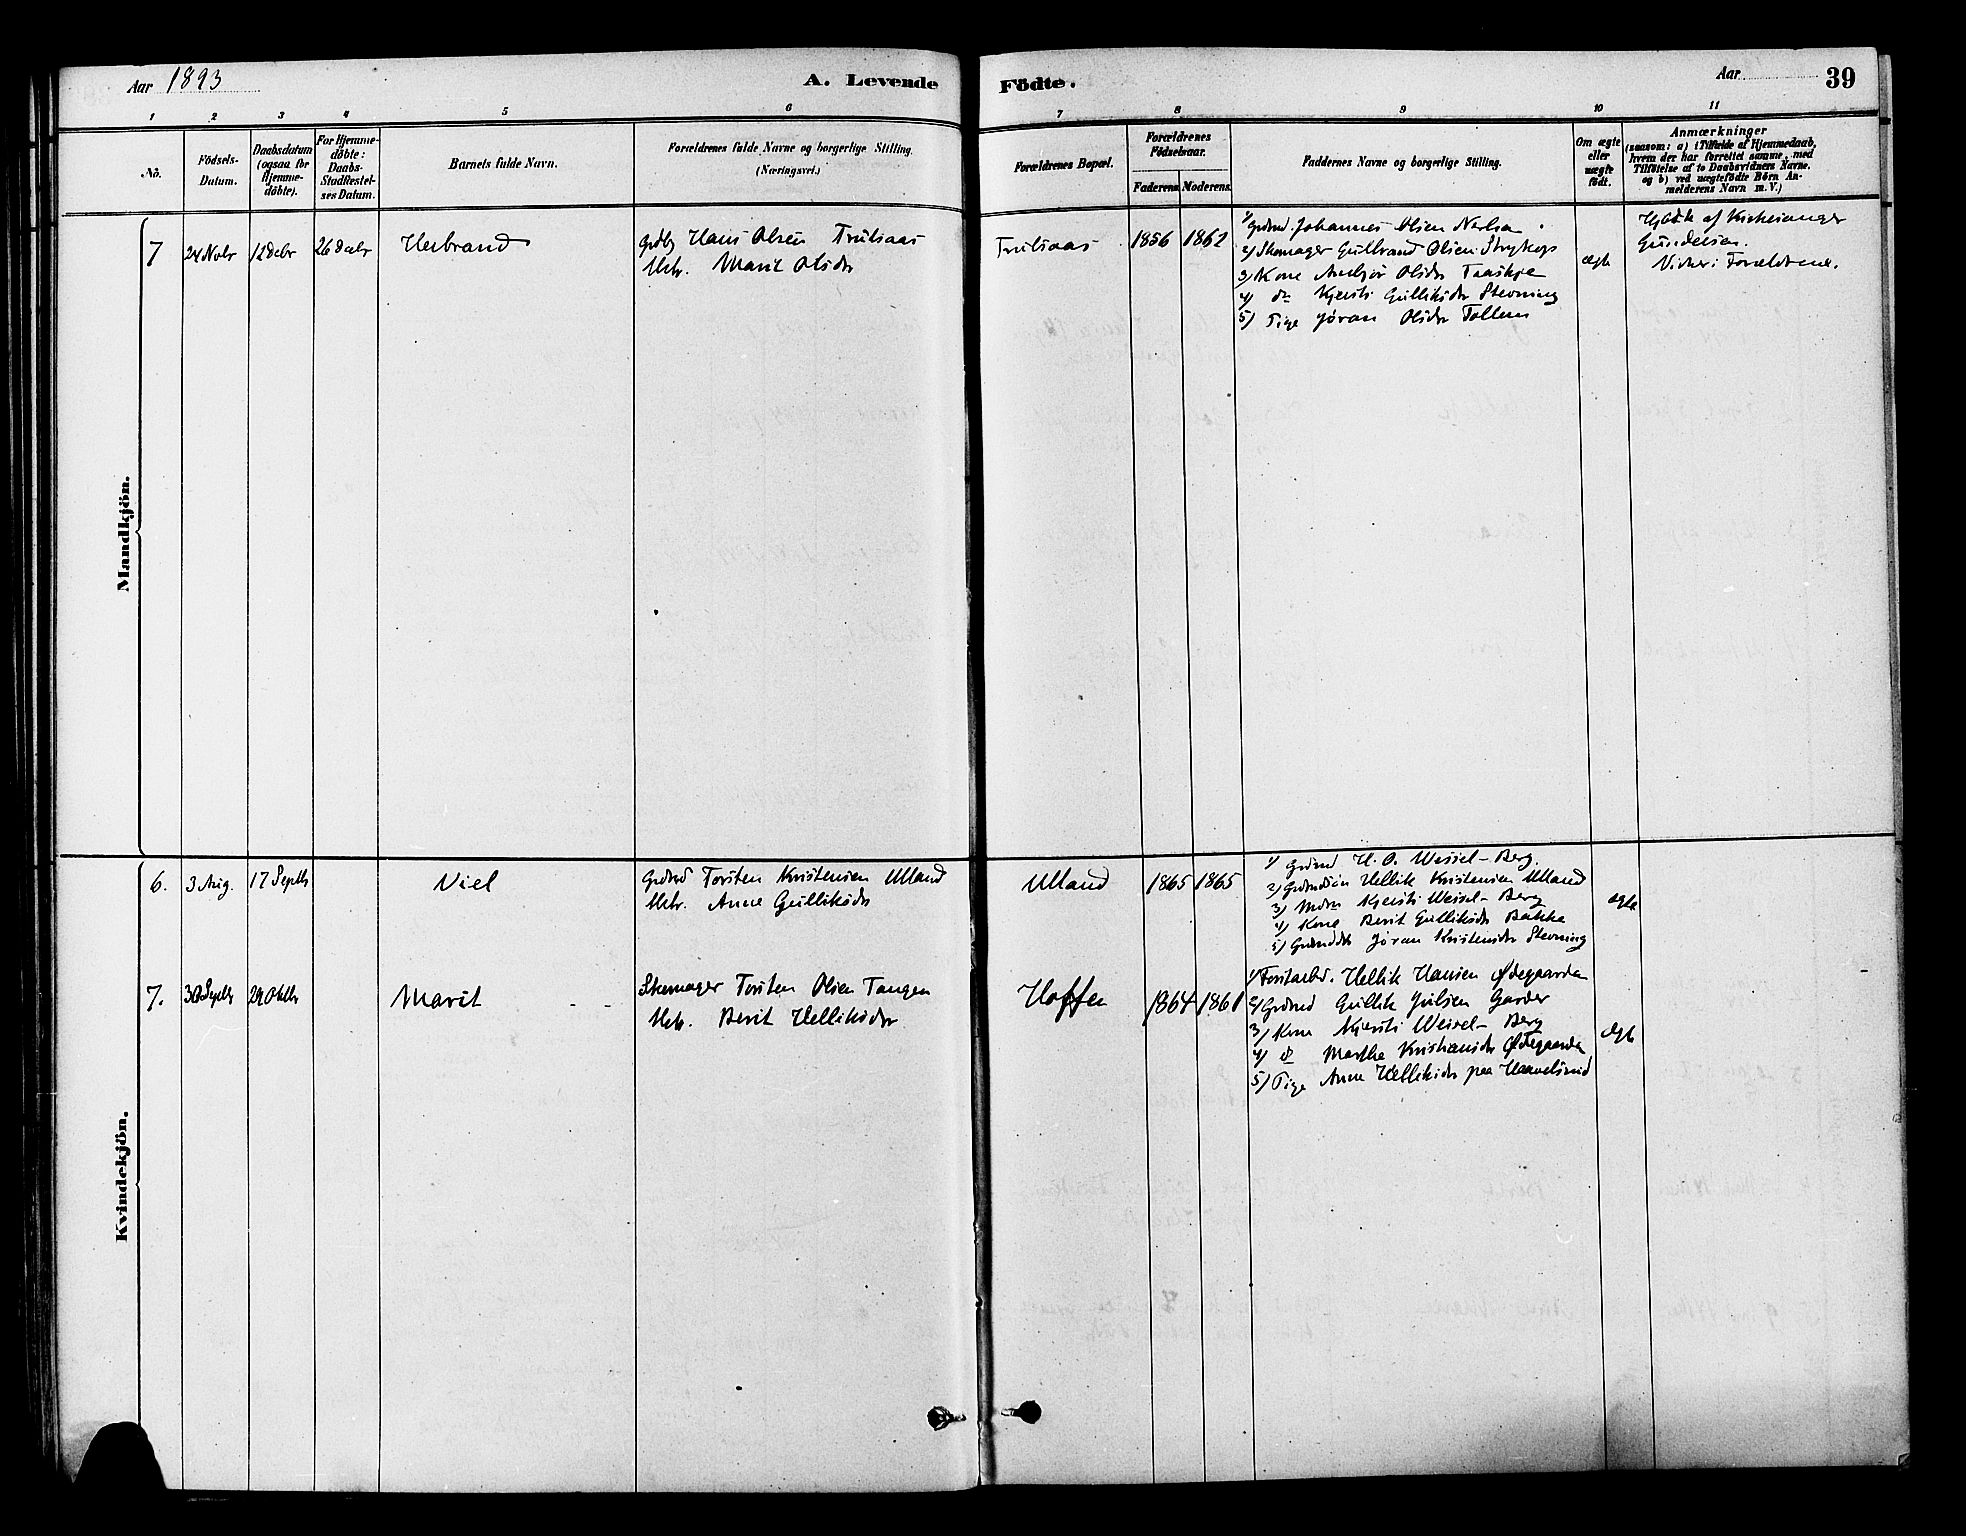 Aar 1893
A. Levende
Födte.
Aar
39
1 2 3 4 5 6 7 8 9 10 11
No.
Födsels-
Datum.
Daabsdatum
(ogsaa for
Hjemme-
döbte).
For Hjemme-
döbte:
Daabs-
Stadfæstel-
ses Datum.
Barnets fulde Navn.
Forældrenes fulde Navne og borgerlige Stilling.
(Næringsvei.)
Forældrenes Bopæl.
Forældrenes
Födselsaar.
Faderens. Moderens.
Faddernes Navne og borgerlige Stilling.
Om ægte
eller
uægte
födt.
Anmærkninger
(saasom: a) i Tilfælde af Hjemmedaab,
hvem der har forrettet samme, med
Tilföielse af to Daabsvidners Navne.
og b) ved uægtefödte Börn An-
melderens Navn m. V.)
Mandkjön.
7 24 Novbr 12 Decbr 26 Decbr Herbrand
Grdbr Hans Olsen Trulsaas
Hstr. Marit Olsdr
Trulsaas 1856 1862
1) Grdmd. Johannes Olsen
2) Skomager Gulbrand Olsen
3) Kone Olsdr
4) do Kjersti Gulliksdr Stevning
5) Pige Jøran Olsdr Tollem
ægte
Hjdbt af Kirkesanger
Gundersen.
Vidner: Forældrene.
Kvindekjön.
6. 3 Aug. 17 Septb Niel
Grdmd Torsten Kristensen Ulland
Hstr. Anne Gulliksdr
Ulland 1865 1865
1) Grdmd H. O. Wessel-Berg.
2) Grdmdsøn Hellik Kristensen Ulland
3) Mdm Kjersti Wessel-Berg
4) Kone Berit Gulliksdr Bakke
5) Grdmddtr Jøran Kristensdr Stevning
ægte
7. 30 Septb 29 Oktbr Marit
Skomager Torsten Olsen Tangen
Hstr. Berit Helliksdr
Hoffen 1864 1861
1) Forstarbd. Hellik Hansen Ødegaarden
2) Grdmd Gullik Juelsen Garder
3) Kone Kjersti Wessel-Berg
4) do Marthe Kristiansdr Ødegaarden
5) Pige Anne Helliksdr paa Haavelsrud
ægte